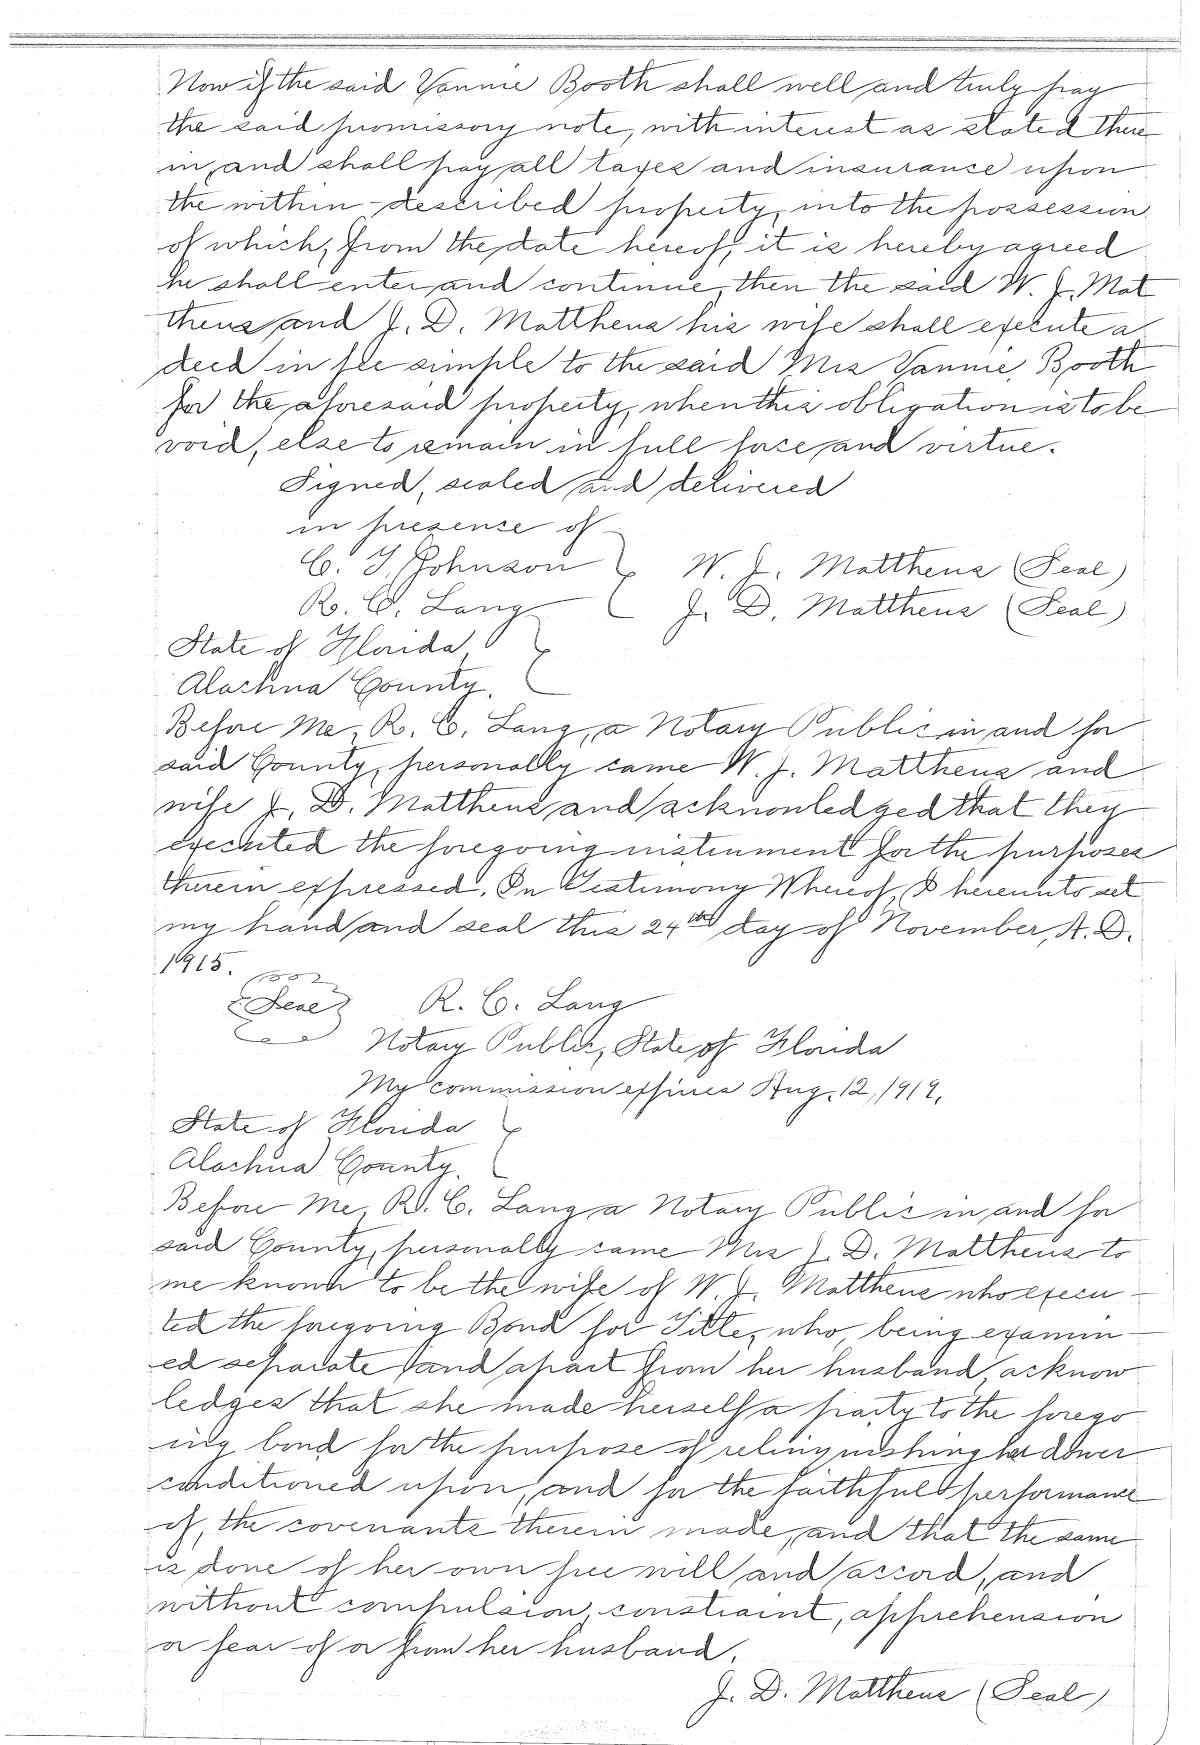 Now if the said Vannie Booth shall well and truly pay
the said promissory note, with interest as stated there
in, and shall pay all taxes and insurance upon
the within-described property, into the possession
of which, from the date hereof, it is hereby agreed
he shall enter and continue, then the said W. J. Mat
thews and J. D. Matthews his wife shall execute a
deed in fee simple to the said Mrs Vannie Booth
for the aforesaid property, when this obligation is to be
void, else to remain in full force and virtue.
Signed, sealed and delivered
in presence of
C. T. Johnson } W. J. Matthews (Seal)
R. C. Lang J. D. Matthews (Seal)
State of Florida }
Alachua County.
Before Me, R. C. Lang, a Notary Public in and for
said County, personally came W. J. Matthews and
wife J. D. Matthews and acknowledged that they
executed the foregoing instrument for the purposes
therein expressed. In Testimony Whereof, I hereunto set
my hand and seal this 24th day of November, A. D.
1915.
Seal R. C. Lang
Notary Public, State of Florida
My commission expires Aug. 12, 1919.
State of Florida }
Alachua County.
Before Me, R. C. Lang a Notary Public in and for
said County, personally came Mrs J. D. Matthews to
me known to be the wife of W. J. Matthews who execu-
ted the foregoing Bond for Title, who, being examin-
ed separate and apart from her husband, acknow
ledges that she made herself a party to the forego
ing bond for the purpose of relinquishing her dower
conditioned upon, and for the faithful performance
of, the covenants therein made, and that the same
is done of her own free will and accord, and
without compulsion, constraint, apprehension
or fear of or from her husband.
J. D. Matthews (Seal)